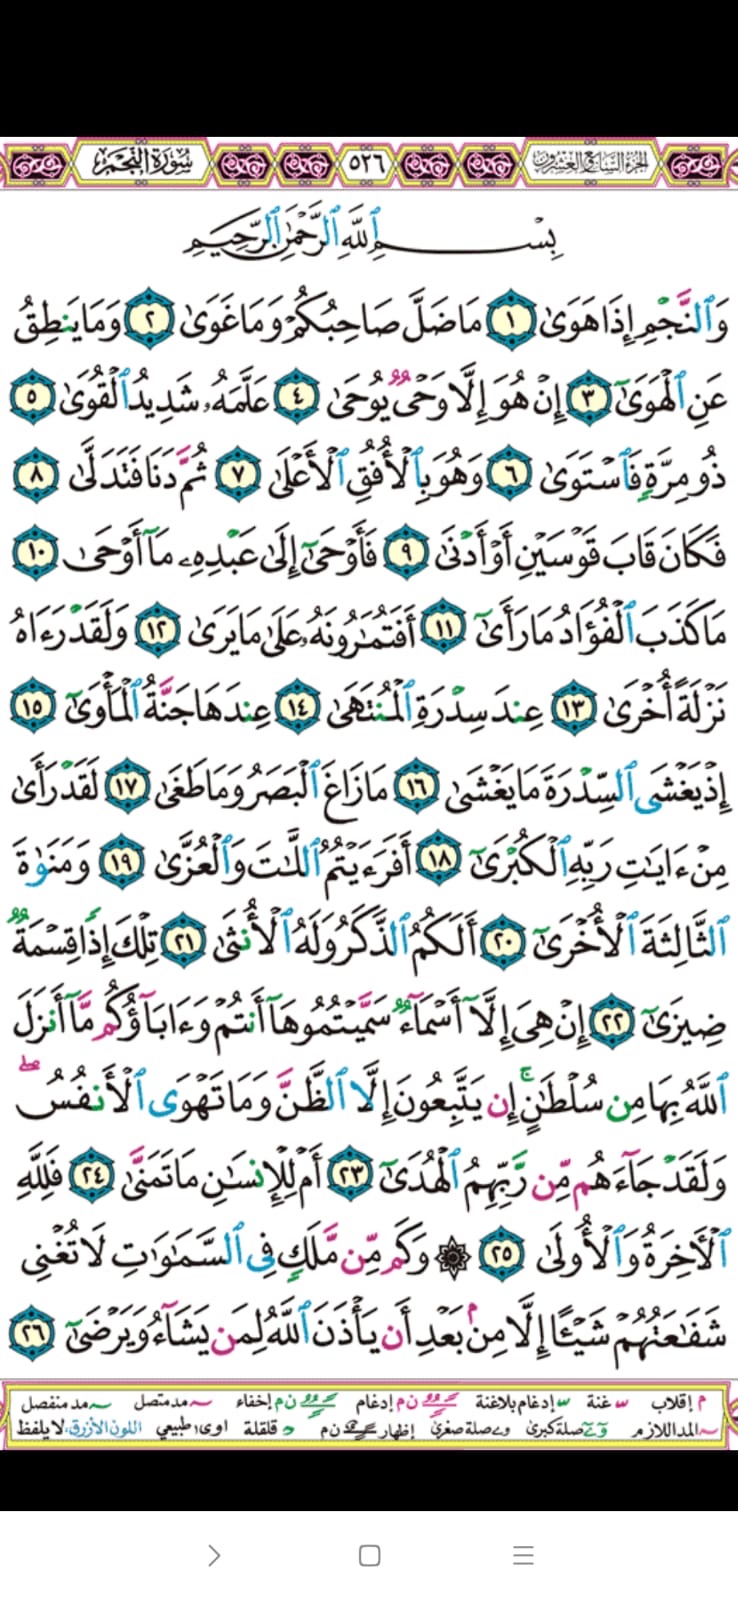 الجزء السابع والعشرون ٥٢٦ سورة النجم
بِسْمِ ٱللَّهِ ٱلرَّحْمَٰنِ ٱلرَّحِيمِ
وَٱلنَّجْمِ إِذَا هَوَىٰ ١ مَا ضَلَّ صَاحِبُكُمْ وَمَا غَوَىٰ ٢ وَمَا يَنطِقُ
عَنِ ٱلْهَوَىٰٓ ٣ إِنْ هُوَ إِلَّا وَحْىٌ يُوحَىٰ ٤ عَلَّمَهُۥ شَدِيدُ ٱلْقُوَىٰ ٥
ذُو مِرَّةٍ فَٱسْتَوَىٰ ٦ وَهُوَ بِٱلْأُفُقِ ٱلْأَعْلَىٰ ٧ ثُمَّ دَنَا فَتَدَلَّىٰ ٨
فَكَانَ قَابَ قَوْسَيْنِ أَوْ أَدْنَىٰ ٩ فَأَوْحَىٰٓ إِلَىٰ عَبْدِهِۦ مَآ أَوْحَىٰ ١٠
مَا كَذَبَ ٱلْفُؤَادُ مَا رَأَىٰٓ ١١ أَفَتُمَٰرُونَهُۥ عَلَىٰ مَا يَرَىٰ ١٢ وَلَقَدْ رَءَاهُ
نَزْلَةً أُخْرَىٰ ١٣ عِندَ سِدْرَةِ ٱلْمُنتَهَىٰ ١٤ عِندَهَا جَنَّةُ ٱلْمَأْوَىٰٓ ١٥
إِذْ يَغْشَى ٱلسِّدْرَةَ مَا يَغْشَىٰ ١٦ مَا زَاغَ ٱلْبَصَرُ وَمَا طَغَىٰ ١٧ لَقَدْ رَأَىٰ
مِنْ ءَايَٰتِ رَبِّهِ ٱلْكُبْرَىٰٓ ١٨ أَفَرَءَيْتُمُ ٱللَّٰتَ وَٱلْعُزَّىٰ ١٩ وَمَنَوٰةَ
ٱلثَّالِثَةَ ٱلْأُخْرَىٰٓ ٢٠ أَلَكُمُ ٱلذَّكَرُ وَلَهُ ٱلْأُنثَىٰ ٢١ تِلْكَ إِذًا قِسْمَةٌ
ضِيزَىٰٓ ٢٢ إِنْ هِىَ إِلَّآ أَسْمَآءٌ سَمَّيْتُمُوهَآ أَنتُمْ وَءَابَآؤُكُم مَّآ أَنزَلَ
ٱللَّهُ بِهَا مِن سُلْطَٰنٍ ۚ إِن يَتَّبِعُونَ إِلَّا ٱلظَّنَّ وَمَا تَهْوَى ٱلْأَنفُسُ ۖ
وَلَقَدْ جَآءَهُم مِّن رَّبِّهِمُ ٱلْهُدَىٰٓ ٢٣ أَمْ لِلْإِنسَٰنِ مَا تَمَنَّىٰ ٢٤ فَلِلَّهِ
ٱلْـَٔاخِرَةُ وَٱلْأُولَىٰ ٢٥ ۞ وَكَم مِّن مَّلَكٍ فِى ٱلسَّمَٰوَٰتِ لَا تُغْنِى
شَفَٰعَتُهُمْ شَيْـًٔا إِلَّا مِنۢ بَعْدِ أَن يَأْذَنَ ٱللَّهُ لِمَن يَشَآءُ وَيَرْضَىٰٓ ٢٦
م إقلاب غنة إدغام بلاغنة ن م إدغام ن م إخفاء مد متصل مد منفصل
المد اللازم صلة كبرى صلة صغرى إظهار ن م قلقلة اوى طبيعي اللون الأزرق: لا يلفظ